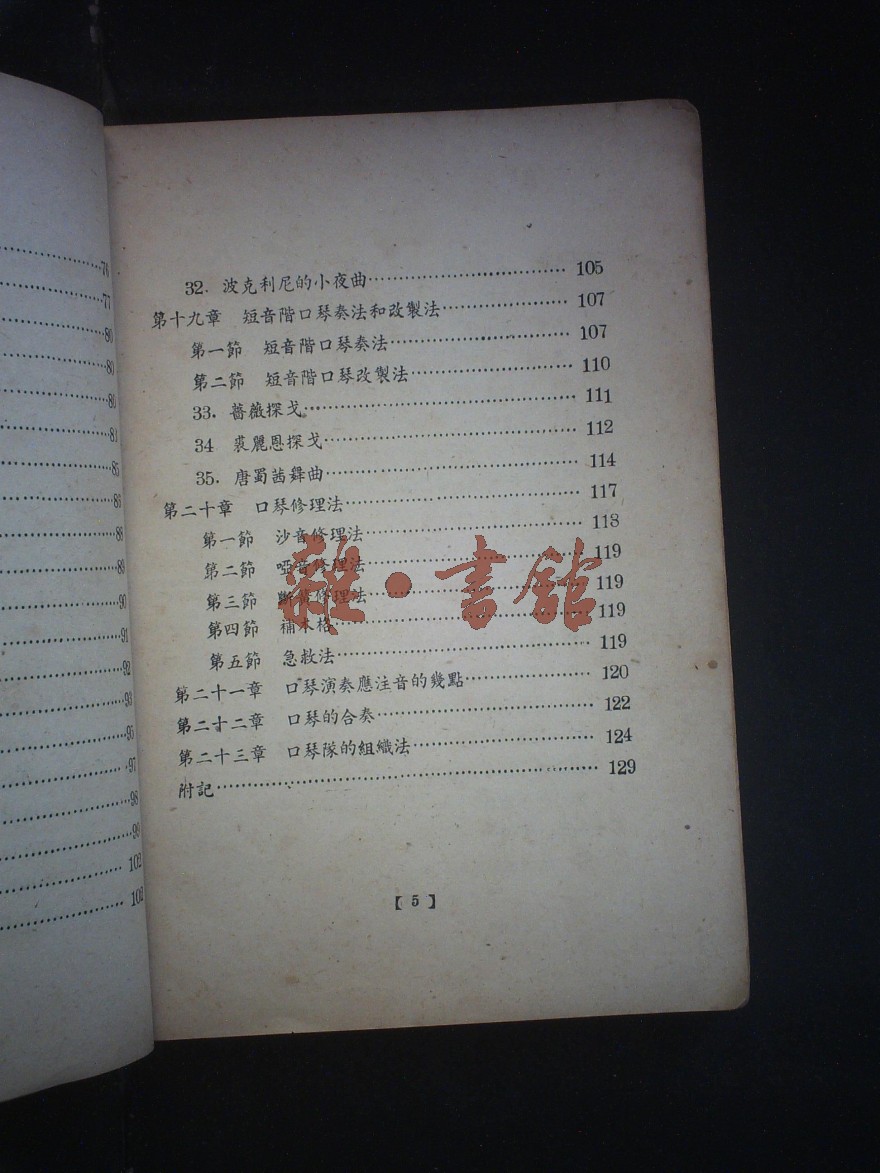 76
77
80
80
80
83
85
86
88
89
90
91
92
93
95
97
98
99
102
32. 波克利尼的小夜曲 105
第十九章 短音階口琴奏法和改製法 107
第一節 短音階口琴奏法 107
第二節 短音階口琴改製法 110
33. 薔薇探戈 111
34 裘麗恩探戈 112
35. 唐蜀茜舞曲 114
第二十章 口琴修理法 117
第一節 沙音修理法 118
第二節 啞音修理法 119
第三節 斷簧修理法 119
第四節 補木格 119
第五節 急救法 119
第二十一章 口琴演奏應注音的幾點 120
第二十二章 口琴的合奏 122
第二十三章 口琴隊的組織法 124
附記 129
【5】
雜·書館